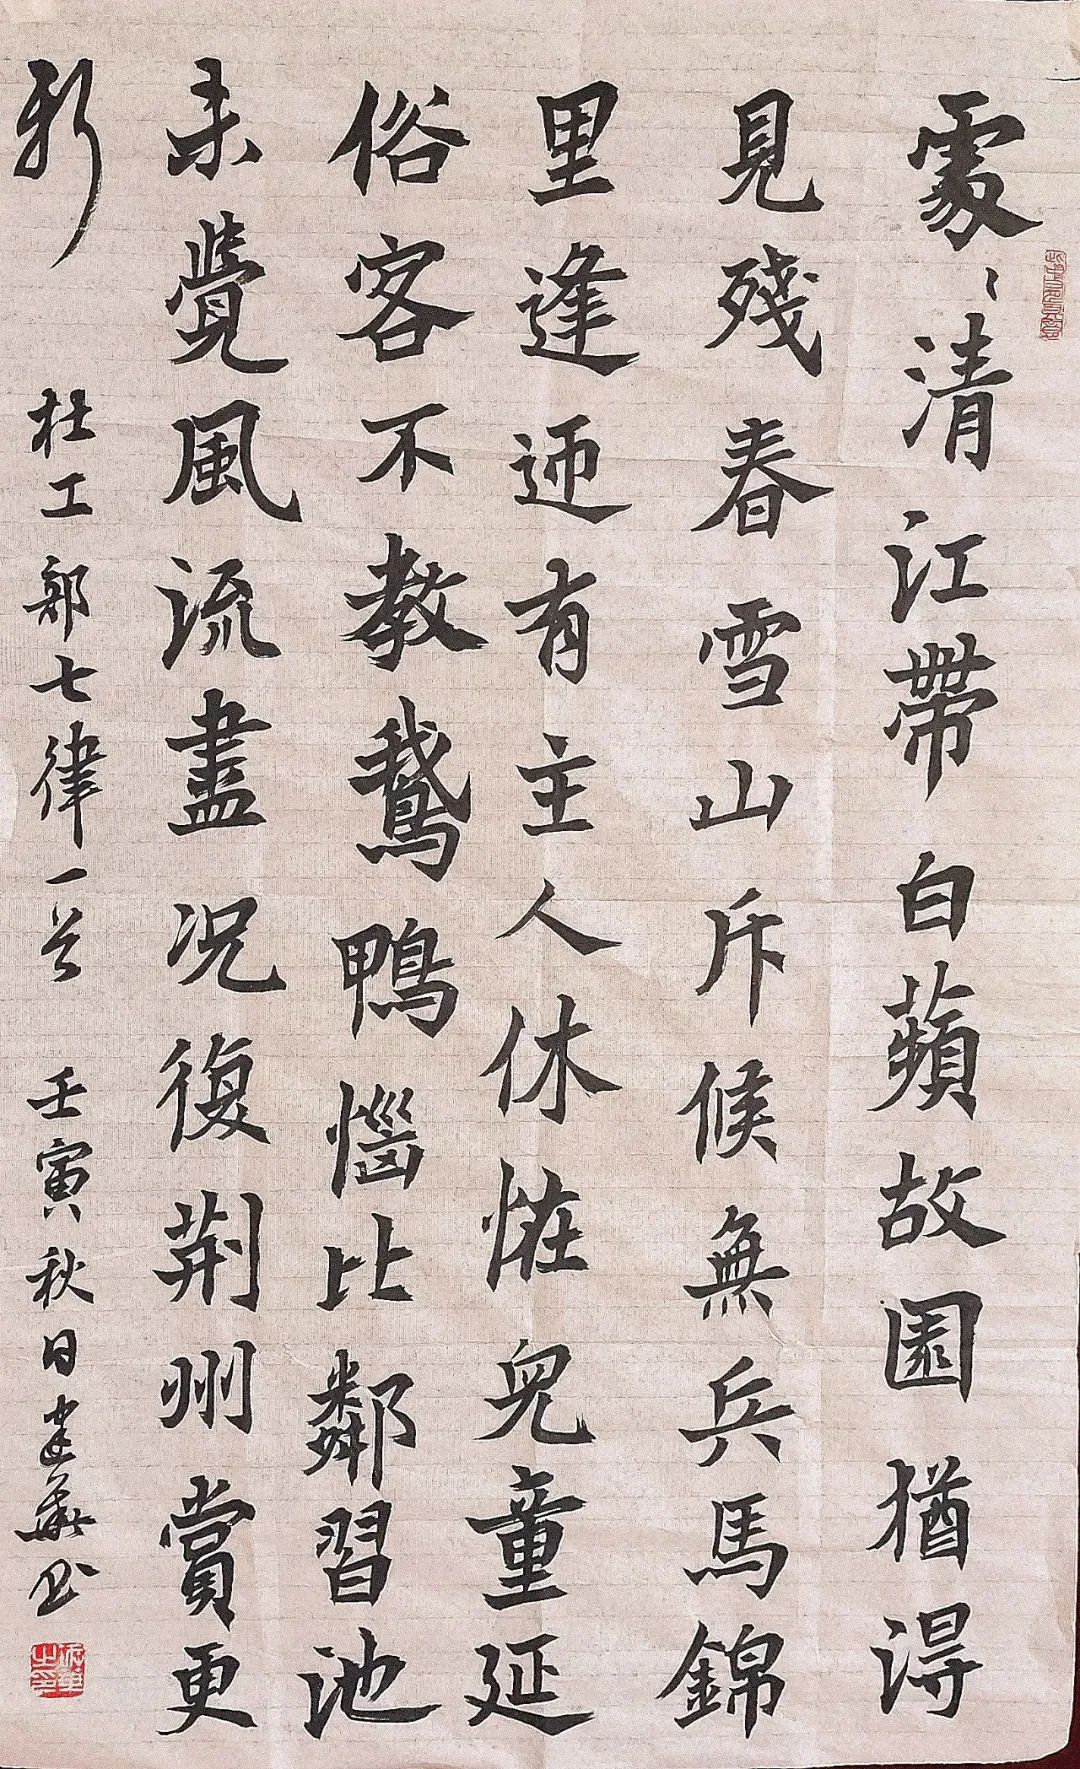 處〻清江帶白蘋故園猶得
見殘春雪山斥候無兵馬錦
里逢迎有主人休怪兒童延
俗客不教鵝鴨惱比鄰習池
未覺風流盡况復荆州賞更
新 杜工部七律一首 壬寅秋日建華书